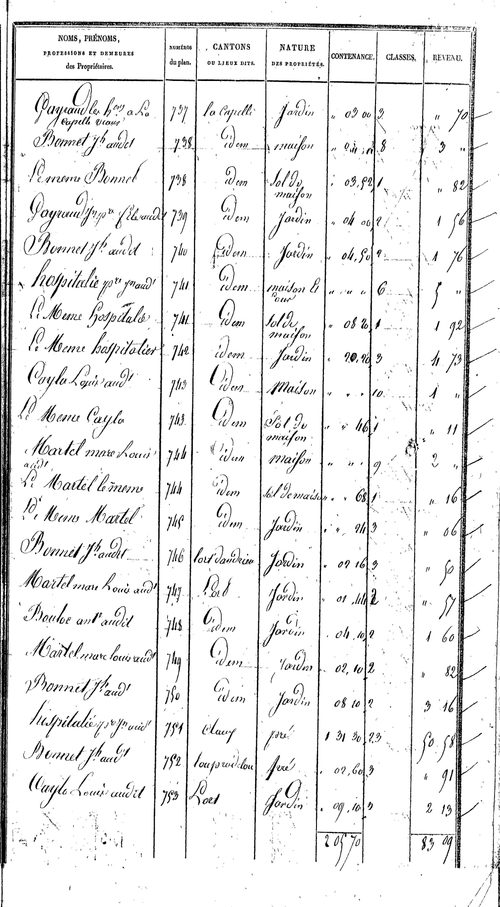 NOMS, PRÉNOMS, PROFESSIONS ET DEMEURES des Propriétaires. NUMÉROS du plan. CANTONS OU LIEUX DITS. NATURE DES PROPRIÉTÉS. CONTENANCE. CLASSES. REVENU.
Gayraud les hers a La Capelle 737 la Capelle Jardin " 03 00 3 " 70
Bonnet Jh audit 738 idem maison " " " 8 3 "
Le meme Bonnet 738 idem Sol de maison " 03. 52 1 " 82
Gayraud 739 idem Jardin " 04 00 2 1 56
Bonnet Jh audit 740 idem Jardin " 04. 50 2 1 76
hospitalié 741 idem maison et cour " " " 6 5 "
Le Meme Hospitalié 741 idem sol de maison " 08 20 1 1 92
Le Meme hospitalier 742 idem Jardin " 20. 20 3 4 73
Cayla Louis audt 743 idem Maison " " " 10 1 "
Le Meme Cayla 743 idem Sol de maison " " 46 1 " 11
Martel marc Louis audt 744 idem maison " " " 9 2 "
Le Martel lememe 744 idem sol de maison " " 68 1 " 16
Le Meme Martel 745 idem Jardin " " 24 3 " 06
Bonnet Jh audit 746 Jardin " 02 16 3 " 50
Martel marc Louis audt 747 Lort Jardin " 01. 44 2 " 57
Bouloc ant audit 748 idem Jardin " 04. 10 2 1 60
Martel marc louis audt 749 idem Jardin " 02. 10 2 " 82
Bonnet Jh audt 750 idem Jardin " 08 10 2 3 16
hospitalié 751 pré 1 31 30 23 50 58
Bonnet Jh audt 752 pré " 02. 60 3 " 91
Cayla Louis audit 753 Lort Jardin " 09. 10 3 2 13
2 05 70 83 09